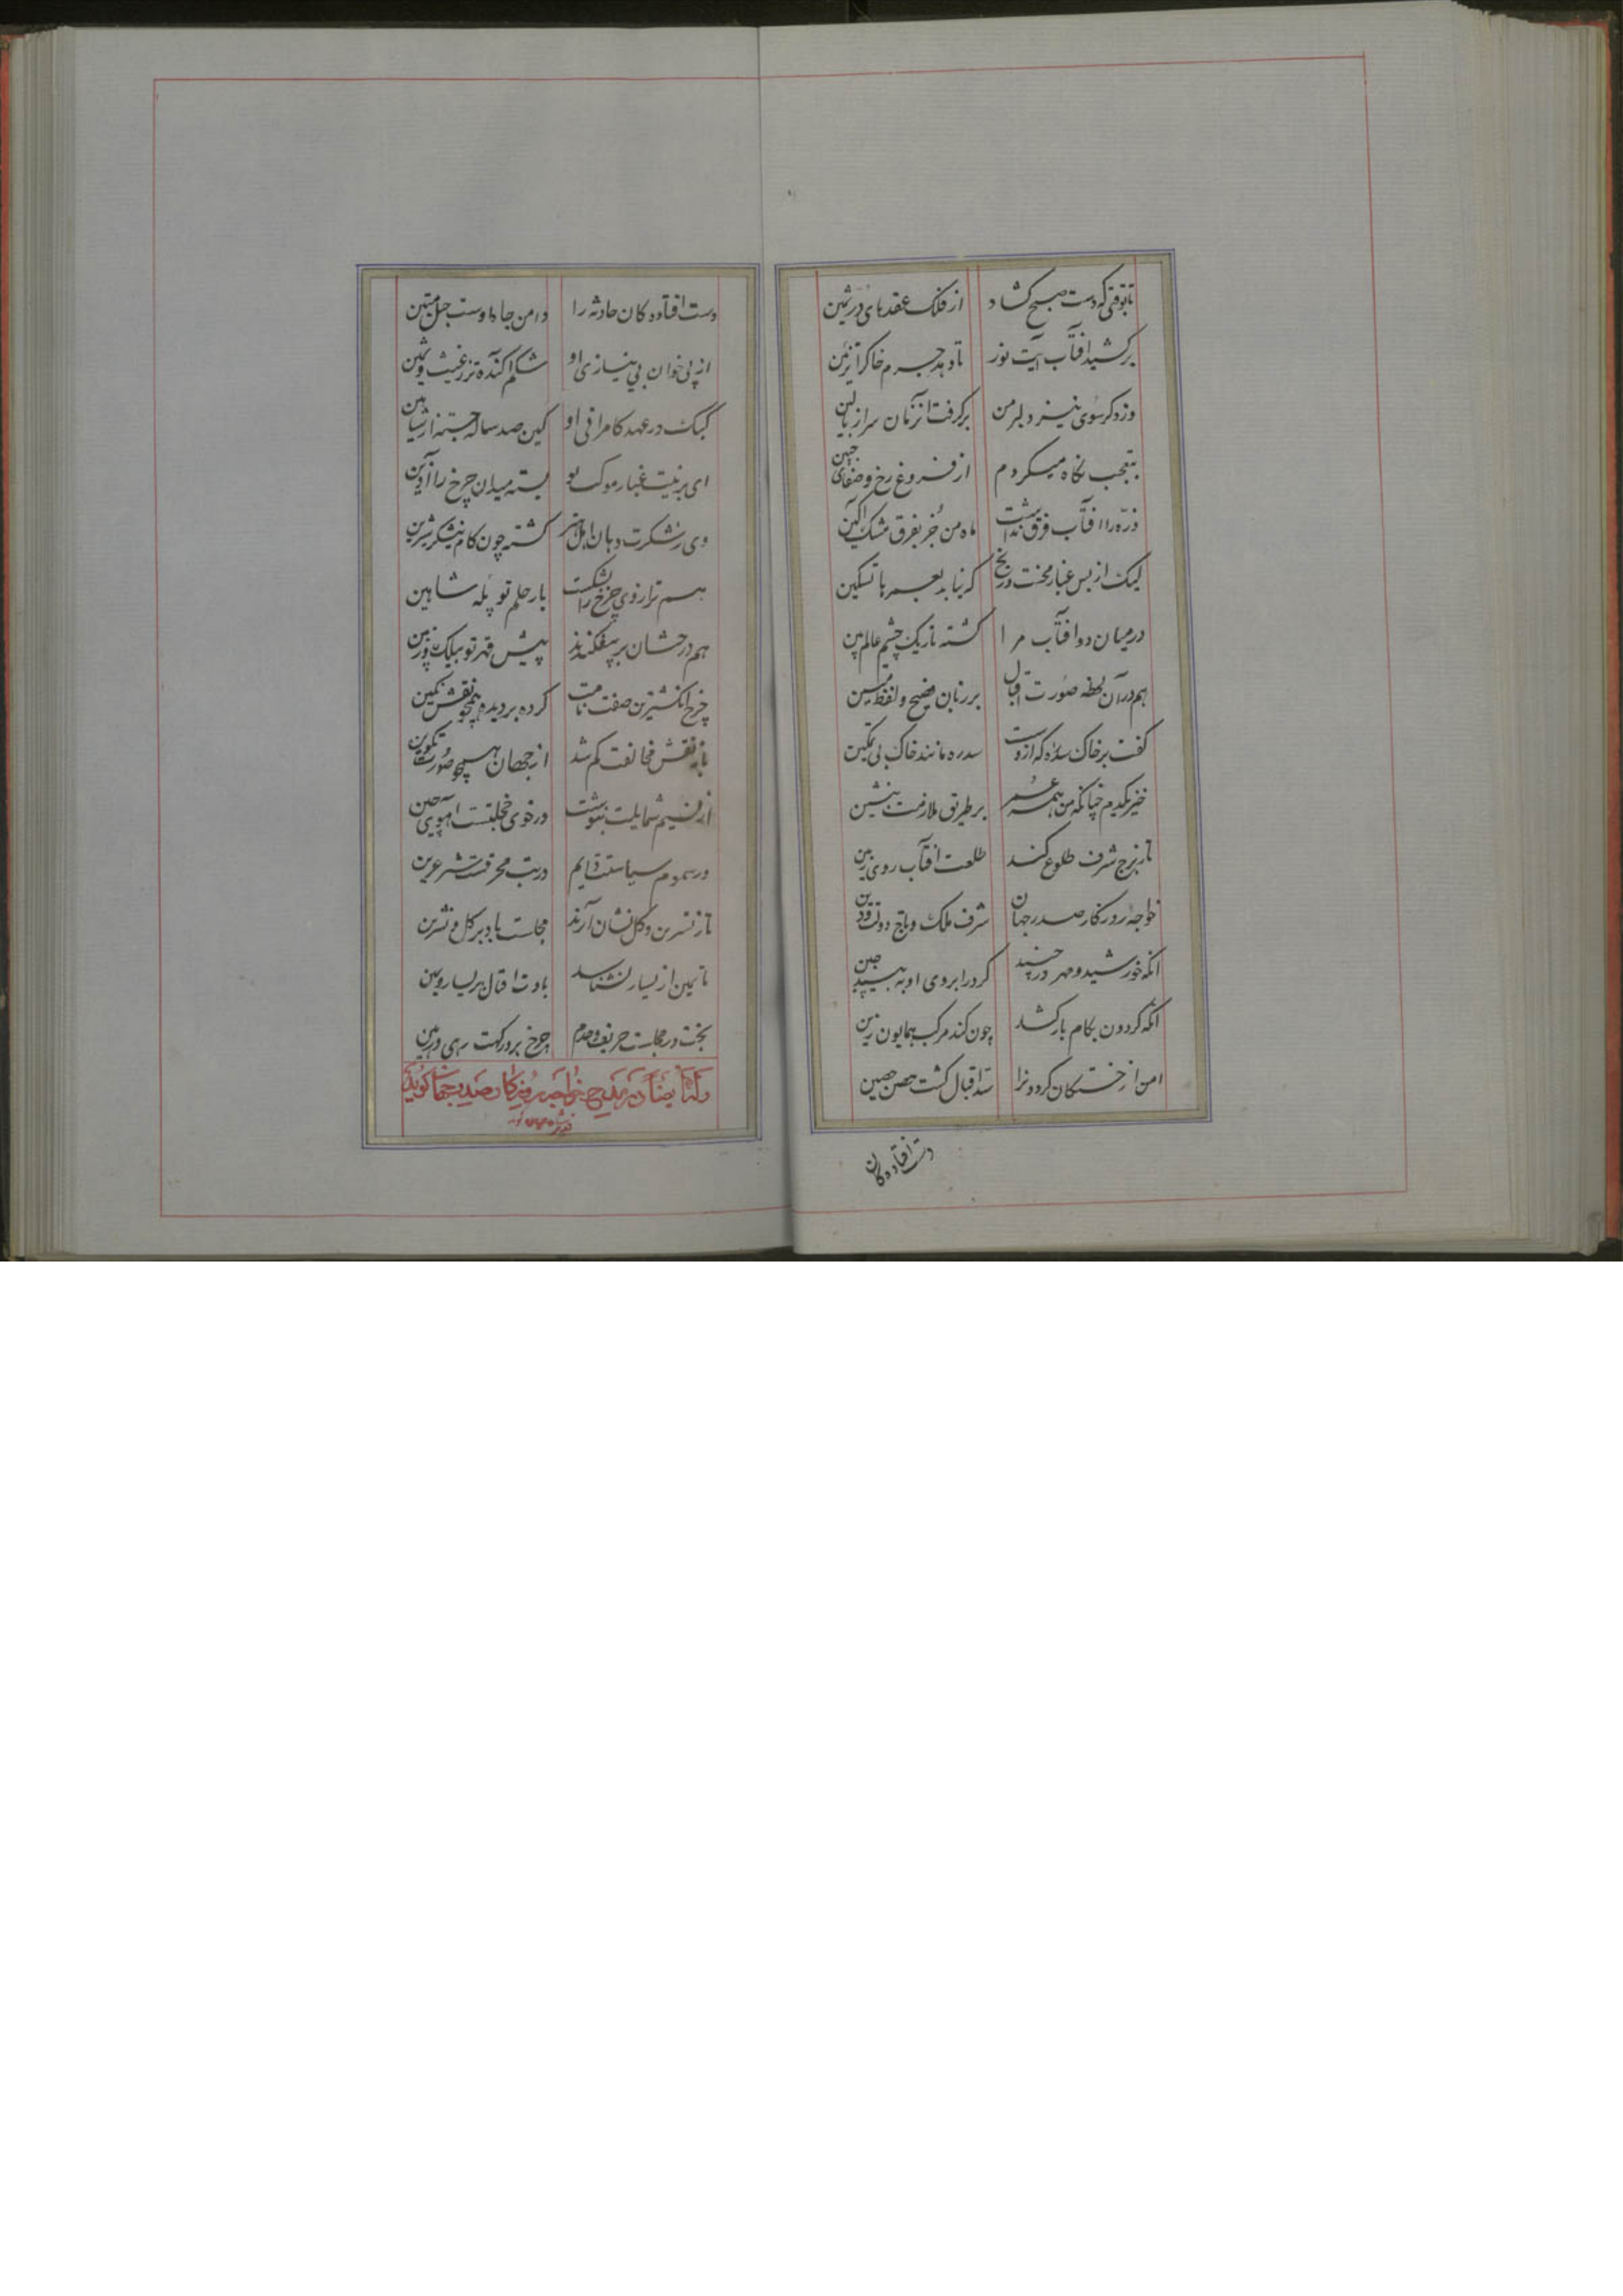 تا بوقتی که دست صبح گشاد از فلک عقدهای در ثمین
برکشید آفتاب آیت نور تا دهد جرم خاکرا تزئین
وز دکر سوی نیز دلبر من برکرفت انزمان سر از بالین
بتعجب نکاه میکردم از فروغ رخ و صفای جبین
ذره را ز آفتاب فرق نداشت ماه من جز بفرق مشک اکین
لیک از بس غبار محنت و رنج که نیابد بعمرها تسکین
در میان دو آفتاب مرا کشته تاریک چشم عالم بین
هم در آن لحظه صورت اقبال بر زبان فصیح و لفظ مبین
گفت بر خاک سده که ازوست سدره مانند خاک بی تمکین
خیز یکدم چنانکه من همه عمر بر طریق ملازمت بنشین
تا ز برج شرف طلوع کند طلعت آفتاب روی زمین
خواجهٔ روزکار صدر جهان شرف ملک و تاج دولت و دین
انکه خورشید و مهر درچیند کر در ابروی او به بیند چین
انکه کردون بکام بازکشد چون کند مرکب همایون زین
امن از خستکان کردونرا سد اقبال کشت حصن حصین
دست افتاده کان
دست افتاده کان حادثه را دامن جاه اوست حبل متین
از پی خوان بی نیازی او شکم آکنده تر ز غث و سمین
کبک در عهد کامرانی او کین صد ساله جسته از شاهین
ای بزینت غبار موکب تو بسته میدان چرخ را آذین
وی ز شکرت دهان اهل هنر کشته چون کام نیشکر شیرین
هم ترازوی چرخ را بشکست بار حلم تو پله شاهین
هم درخشان بر بیفکندند پیش قهر تو بیلک و زوبین
چرخ انکشترین صفت نامت کرده بر دیده همچو نقش نکین
تا به نقش مخالفت کم شد از جهان هیچ صورت تکوین
از نسیم شمایلت بنوشت در خوی خجلتست آهوی چین
در سموم سیاستت دایم در تب محرقست شیر عرین
تا ز نسرین و کل نشان آرند مجلست باد پر کل و نسرین
تا یمین از یسار بشناسد بادت اقبال بر یسار و یمین
بخت در مجلست حریف و ندیم چرخ بر درکهت رهی و رهین
وله ایضاً در مدح خواجه روزکار صدر جهان کوید